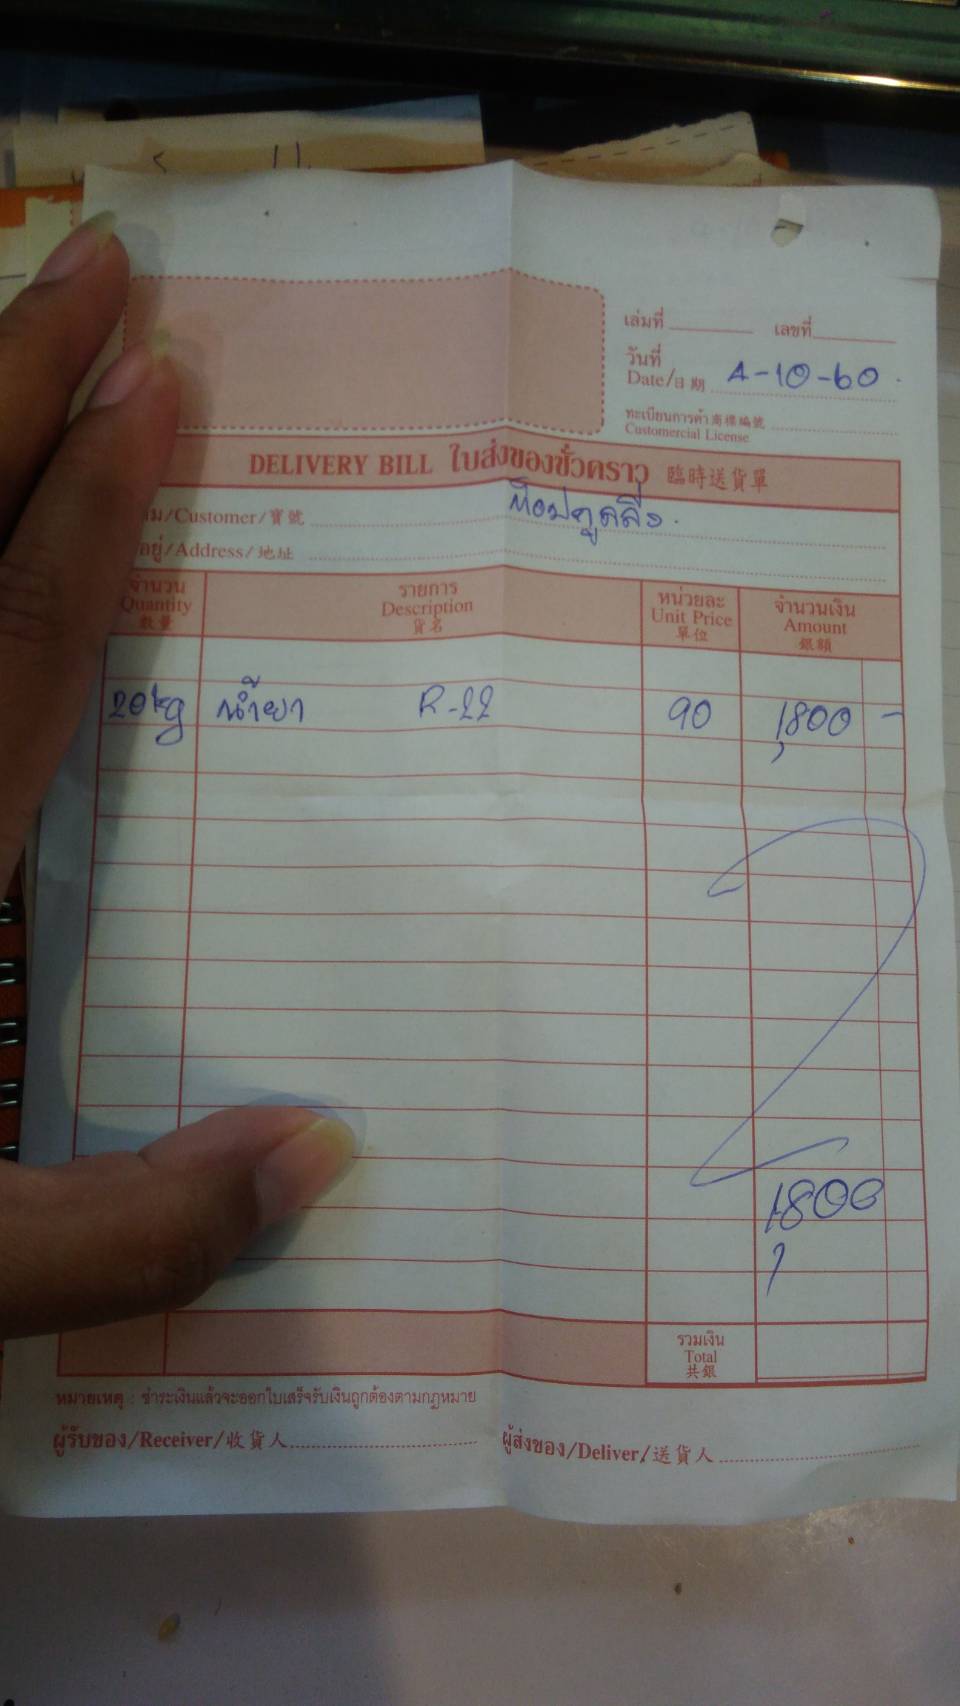 เล่มที่ เลขที่
วันที่
Date/日期 4-10-60
ทะเบียนการค้า 商標編號
Customercial License
DELIVERY BILL ใบส่งของชั่วคราว 臨時送貨單
าม/Customer/寶號 ท๊อปคูลลิ่ง
อยู่/Address/地址
จำนวน รายการ หน่วยละ จำนวนเงิน
Quantity Description Unit Price Amount
數量 貨名 單位 銀額
20kg น้ำยา R-22 90 1,800 -
1,800
รวมเงิน
Total
共銀
หมายเหตุ : ชำระเงินแล้วจะออกใบเสร็จรับเงินถูกต้องตามกฎหมาย
ผู้รับของ/Receiver/收貨人 ผู้ส่งของ/Deliver/送貨人